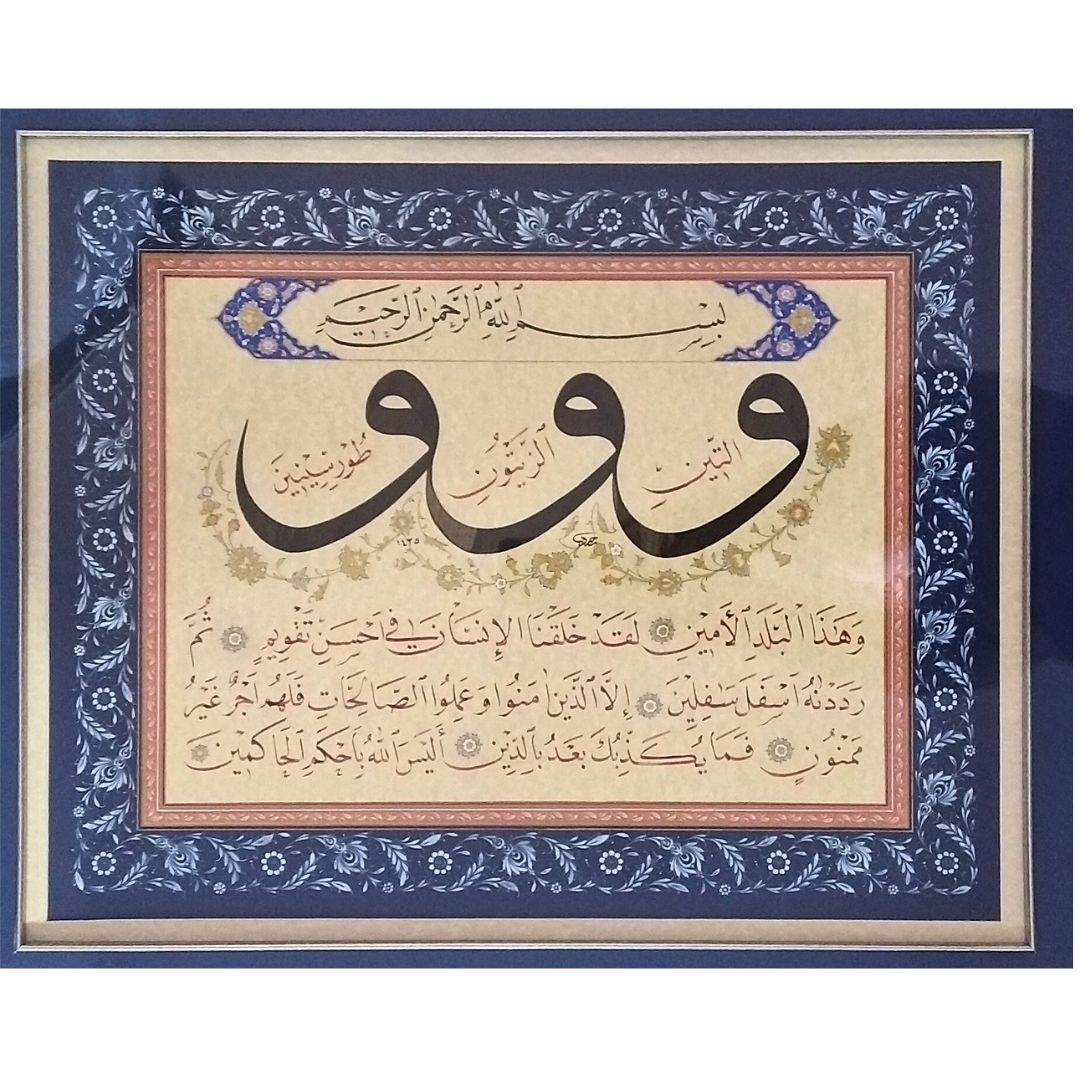 بِسْمِ ٱللّٰهِ ٱلرَّحْمٰنِ ٱلرَّحِيْمِ
و و و
التِّيْنِ الزَّيْتُوْنِ طُوْرِ سِيْنِيْنَ
١٤٣٥
وَهٰذَا الْبَلَدِ الْأَمِيْنِ لَقَدْ خَلَقْنَا الْإِنْسَانَ فِي أَحْسَنِ تَقْوِيْمٍ ثُمَّ
رَدَدْنٰهُ أَسْفَلَ سٰفِلِيْنَ إِلَّا الَّذِيْنَ اٰمَنُوا وَعَمِلُوا الصَّالِحَاتِ فَلَهُمْ أَجْرٌ غَيْرُ
مَمْنُوْنٍ فَمَا يُكَذِّبُكَ بَعْدُ بِالدِّيْنِ أَلَيْسَ اللّٰهُ بِأَحْكَمِ الْحَاكِمِيْنَ